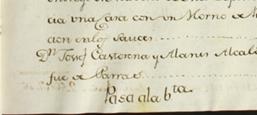 cia una Casa con un Horno de
cen en los Sauces
Dn Josef Castorena y Alanis Alcal
fue de Parras
Pasa a la bta